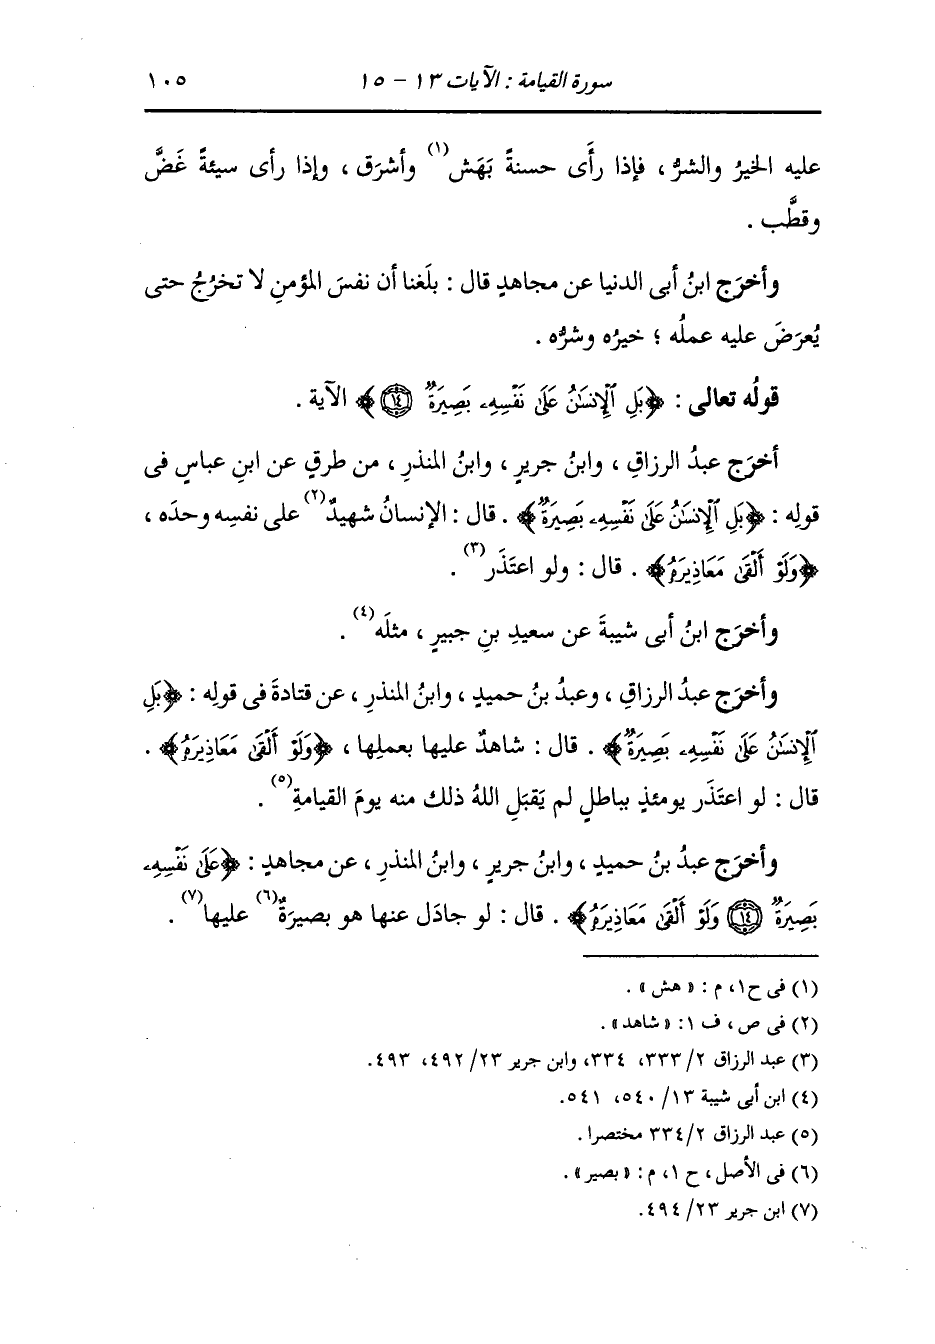 سورة القيامة : الآيات ١٣ - ١٥ ١٠٥
عليه الخيرُ والشرُّ ، فإذا رأَى حسنةً بَهَش(١) وأشرَق ، وإذا رأى سيئةً غَضَّ
وقطَّب .
وأخرَج ابنُ أبى الدنيا عن مجاهدٍ قال : بلَغنا أن نفسَ المؤمنِ لا تخرُجُ حتى
يُعرَضَ عليه عملُه ؛ خيرُه وشرُّه .
قولُه تعالى : ﴿بَلِ ٱلْإِنسَٰنُ عَلَىٰ نَفْسِهِۦ بَصِيرَةٌ ١٤﴾ الآية .
أخرَج عبدُ الرزاقِ ، وابنُ جريرٍ ، وابنُ المنذرِ ، من طرقٍ عن ابنِ عباسٍ فى
قولِه : ﴿بَلِ ٱلْإِنسَٰنُ عَلَىٰ نَفْسِهِۦ بَصِيرَةٌ﴾ . قال : الإنسانُ شهيدٌ(٢) على نفسِه وحدَه ،
﴿وَلَوْ أَلْقَىٰ مَعَاذِيرَهُۥ﴾ . قال : ولو اعتَذَر(٣) .
وأخرَج ابنُ أبى شيبةَ عن سعيدِ بنِ جبيرٍ ، مثلَه(٤) .
وأخرَج عبدُ الرزاقِ ، وعبدُ بنُ حميدٍ ، وابنُ المنذرِ ، عن قتادةَ فى قولِه : ﴿بَلِ
ٱلْإِنسَٰنُ عَلَىٰ نَفْسِهِۦ بَصِيرَةٌ﴾ . قال : شاهدٌ عليها بعملِها ، ﴿وَلَوْ أَلْقَىٰ مَعَاذِيرَهُۥ﴾ .
قال : لو اعتَذَر يومئذٍ بباطلٍ لم يَقبَلِ اللهُ ذلك منه يومَ القيامةِ(٥) .
وأخرَج عبدُ بنُ حميدٍ ، وابنُ جريرٍ ، وابنُ المنذرِ ، عن مجاهدٍ : ﴿عَلَىٰ نَفْسِهِۦ
بَصِيرَةٌ ١٤ وَلَوْ أَلْقَىٰ مَعَاذِيرَهُۥ﴾ . قال : لو جادَل عنها هو بصيرَةٌ(٦) عليها(٧) .
(١) فى ح١، م : « هش » .
(٢) فى ص ، ف ١: « شاهد» .
(٣) عبد الرزاق ٢/ ٣٣٣، ٣٣٤، وابن جرير ٢٣/ ٤٩٢، ٤٩٣.
(٤) ابن أبى شيبة ١٣/ ٥٤٠، ٥٤١.
(٥) عبد الرزاق ٢/ ٣٣٤ مختصرا .
(٦) فى الأصل ، ح ١، م : « بصير» .
(٧) ابن جرير ٢٣/ ٤٩٤.